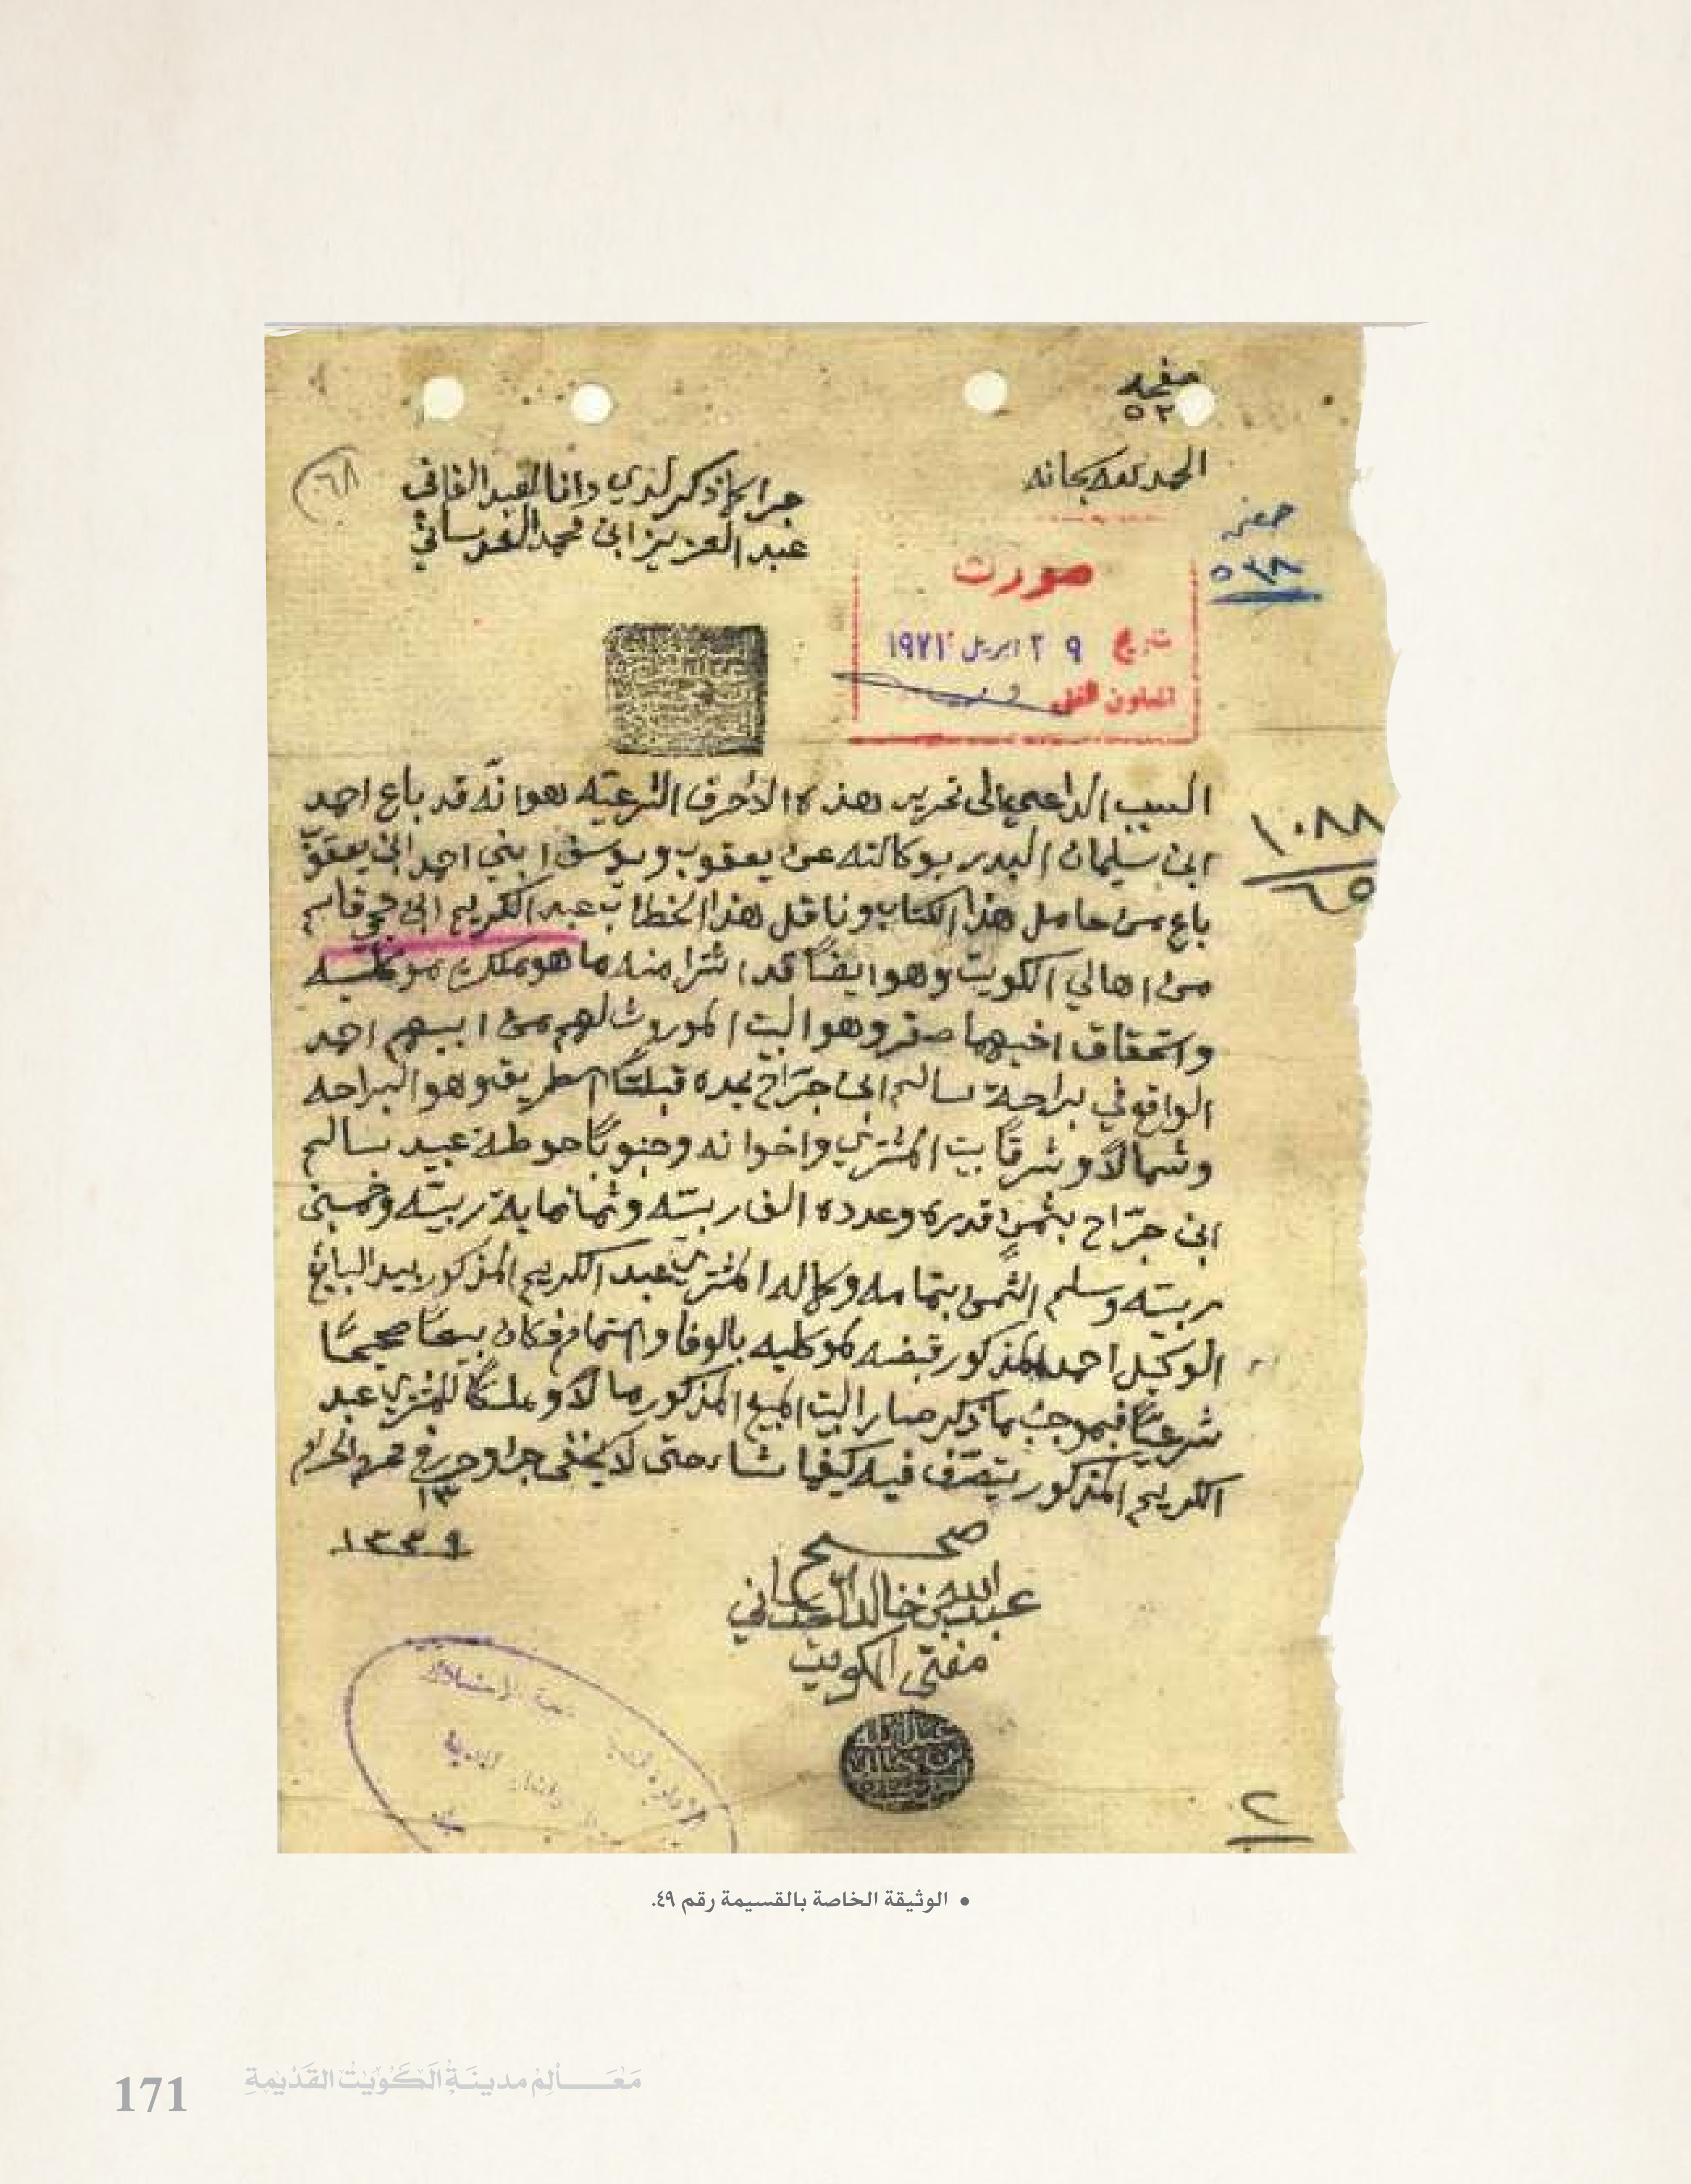 صفحه
٥٢
الحمد لله سبحانه
جرا كما ذكر لدي وانا العبد الفاني
عبد العزيز ابن محمد
صفحه
٥٣٨
صورت
تاريخ ٢٩ ابريل ١٩٧١
المعاون الفني
السبب الداعي الى تحرير هذه الاحرف الشرعيّه هو انّه قد باع احمد
ابن سليمان البدر بوكالته عن يعقوب ويوسف ابني احمد ابن يعقوب
باع من حامل هذا الكتاب وناقل هذا الخطاب عبد الكريم ابن قاسم
من اهالي الكويت وهو ايضاً قد اشترا منه ما هو ملك موكليه
واستحقاق اخيهما صقر وهو البيت الموروث لهم من ابيهم احمد
الواقع في براحة سالم ابن جرّاح يحده قبلتاً طريق وهو البراحه
وشمالاً وشرقاً بيت المشتري واخوانه وجنوباً حوطة عبيد سالم
ابن جرّاح بثمنٍ قدره وعدده الف ربيّه وثمانماية ربيّه وخمسين
ربيّه وسلم الثمن بتمامه وكماله المشتري عبد الكريم المذكور بيد البايع
الوكيل احمد المذكور قبضه لموكليه بالوفا والتمام فكان بيعاً صحيحاً
شرعيّاً فبموجب ما ذكر صار البيت المبيع المذكور مالاً وملكاً للمشتري عبد
الكريم المذكور يتصرّف فيه كيفما شاء حتى لا يخفى جرا وحرر في محرم الحرام
١٣
١٣٣٩
صحيح
عبدالله بن خالد العدساني
مفتي الكويت
١٠٨٨
٦٥
٢
• الوثيقة الخاصة بالقسيمة رقم ٤٩.
171 مَعَالِمُ مدينَةُ الكُوَيتُ القَدْيمةِ